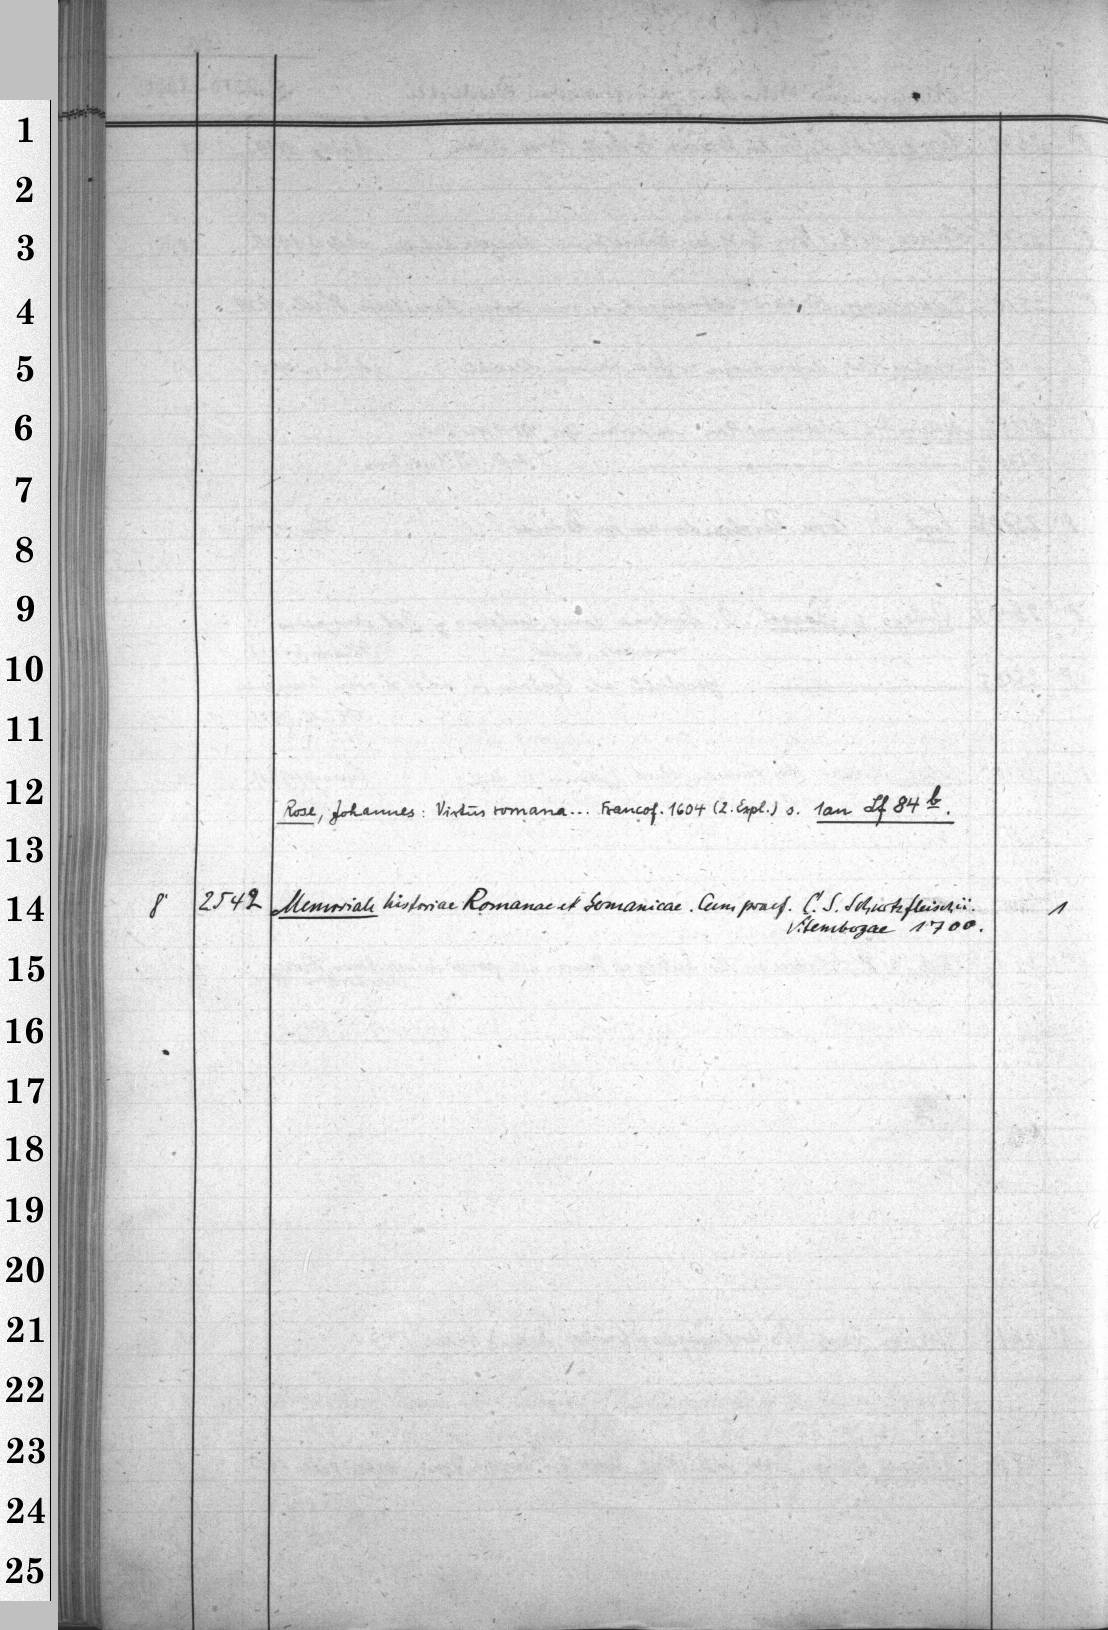 1
2
3
4
5
6
7
8
9
10
11
12
Rose, Johannes: Virtus romana... Francof. 1604 (2. Expl.) s. 1an Lf 84 b.
13
14
8° 2542 Memoriale historiae Romanae et Germanicae. Cum praef. C. S. Schurtzfleischii. 1
Vitembergae 1700.
15
16
17
18
19
20
21
22
23
24
25